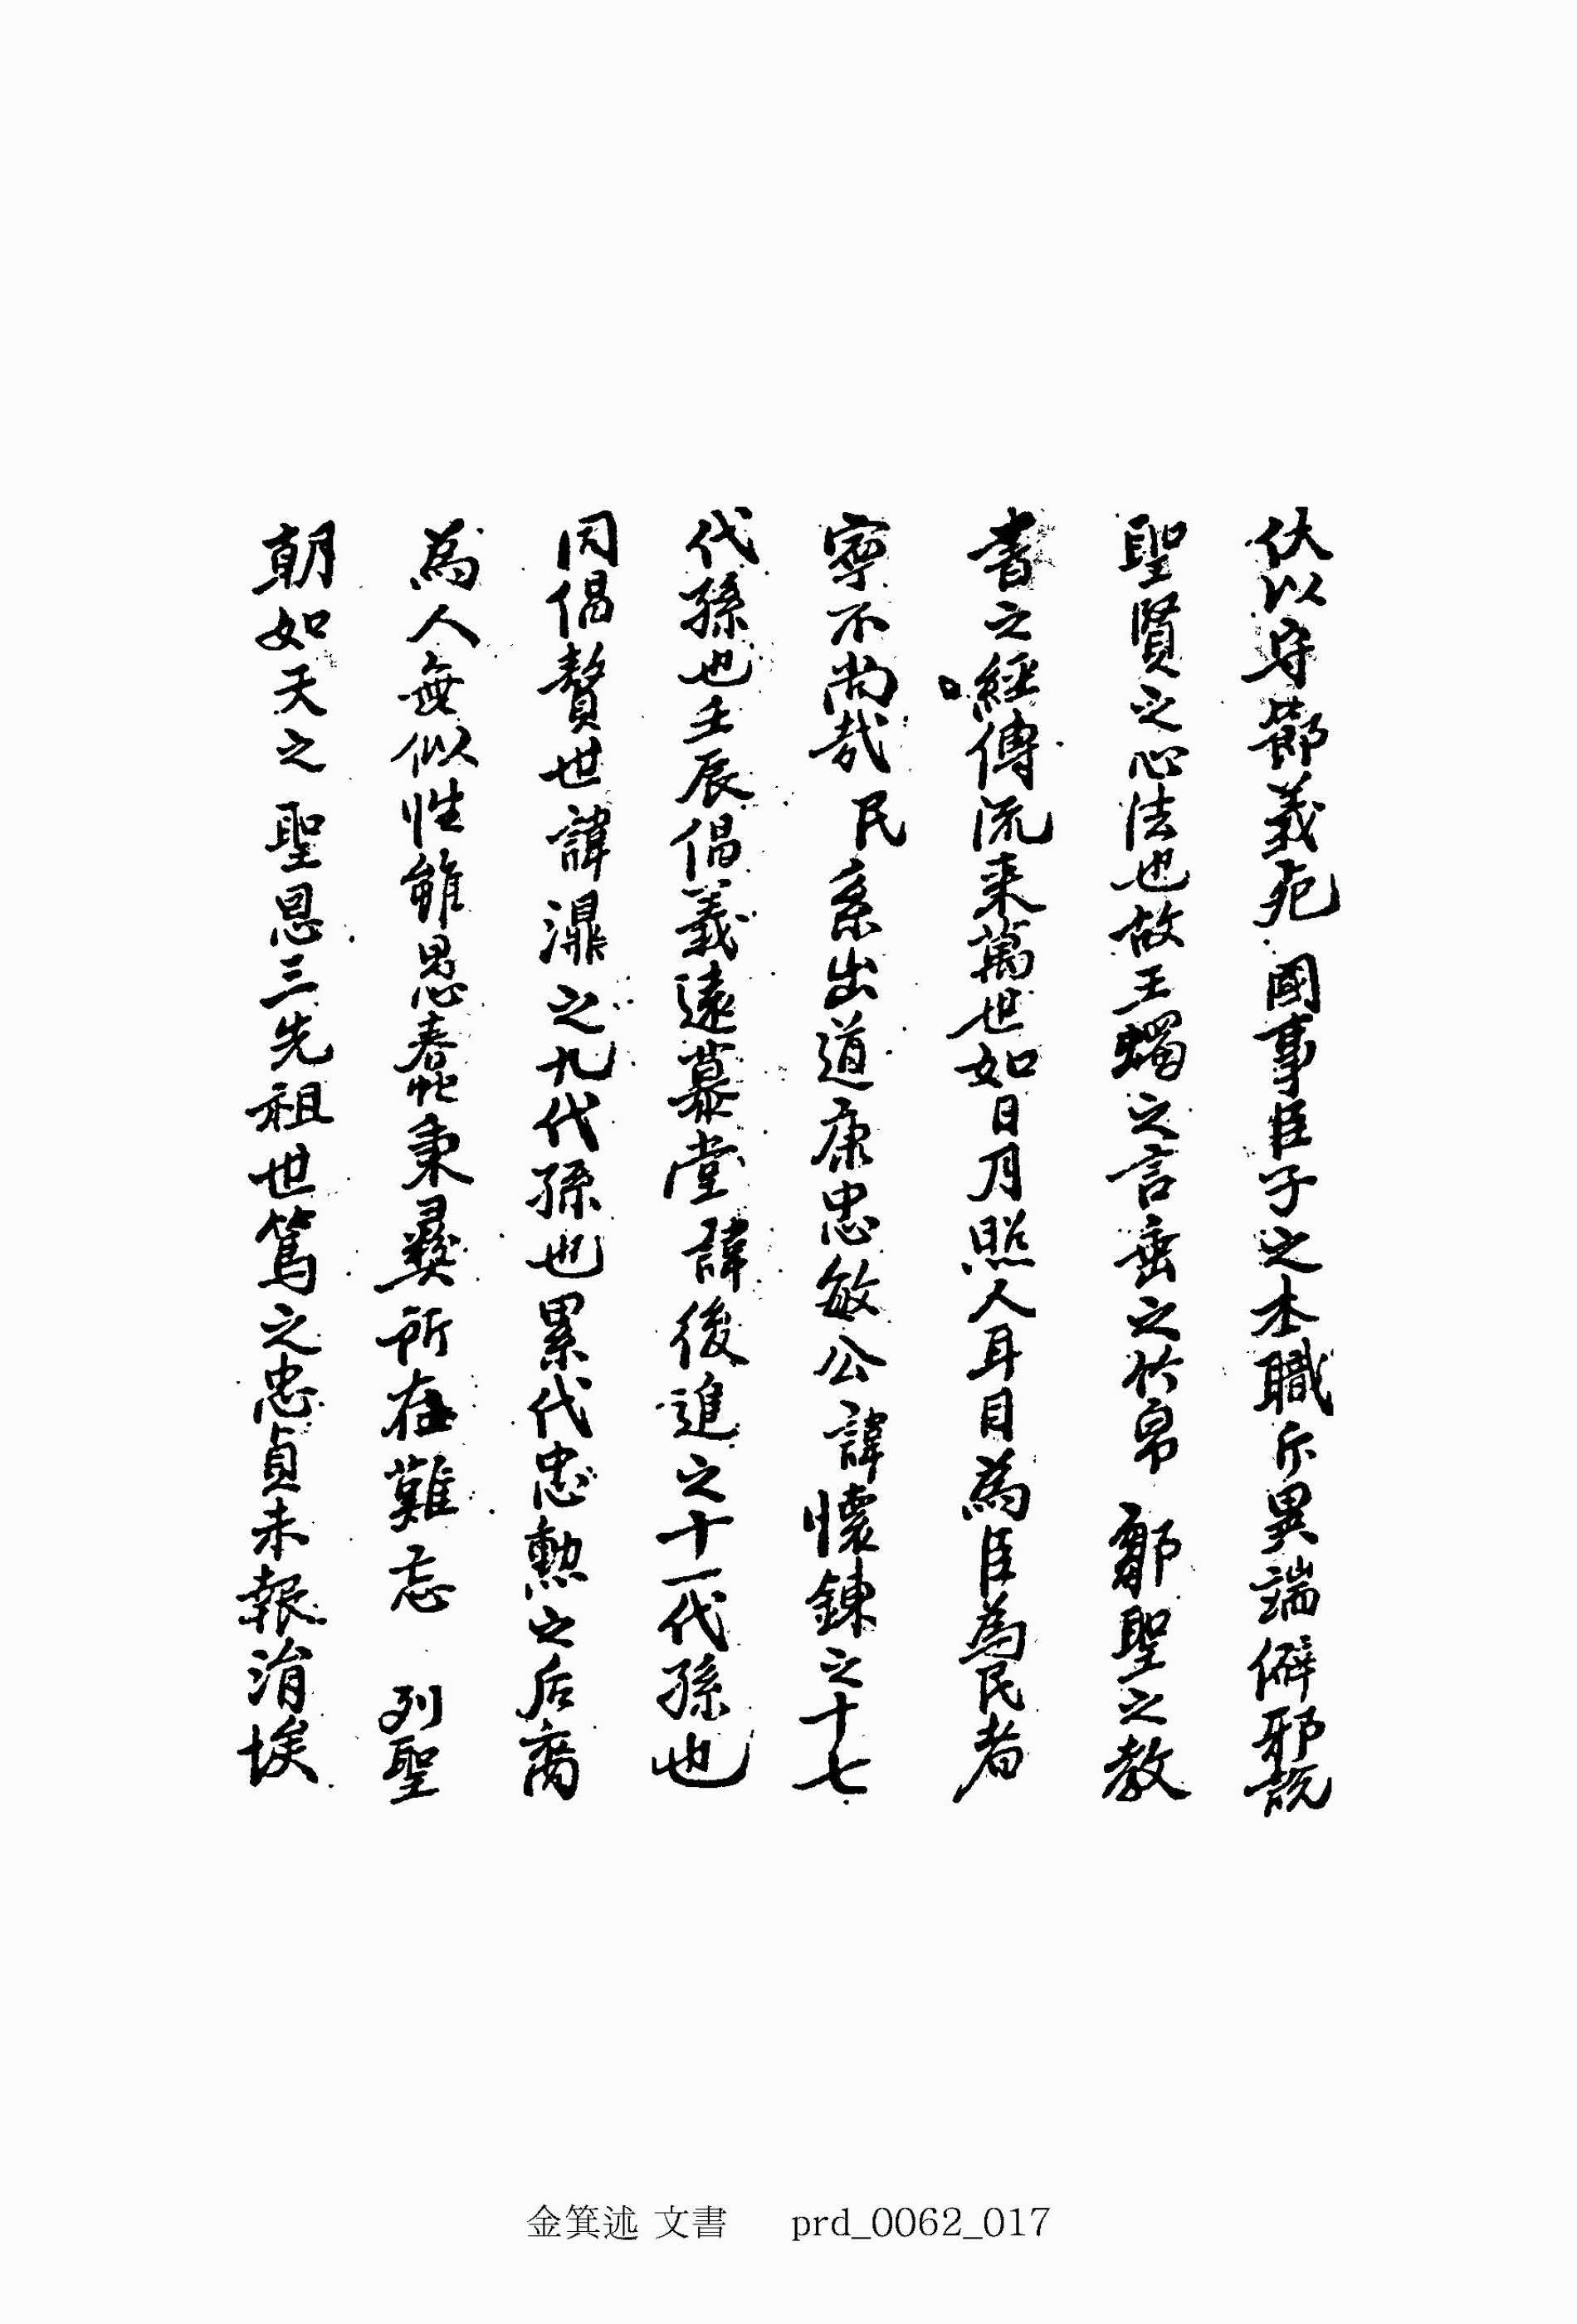 伏以守節義死 國事臣子之本職斥異端僻邪說
聖賢之心法也故王蠋之言垂之竹帛 鄒聖之教
書之經傳流来萬世如日月照人耳目為臣為民者
寧不尚哉 民系出道康忠敏公 諱懷鍊之十七
代孫也壬辰倡義遠慕堂 諱後進之十一代孫也
同倡贊世 諱濎之九代孫也累代忠勲之后裔
為人無似性雖愚蠢秉彛所在難忘 列聖
朝如天之 聖恩三先祖世篤之忠貞未報涓埃
金箕述 文書 prd_0062_017